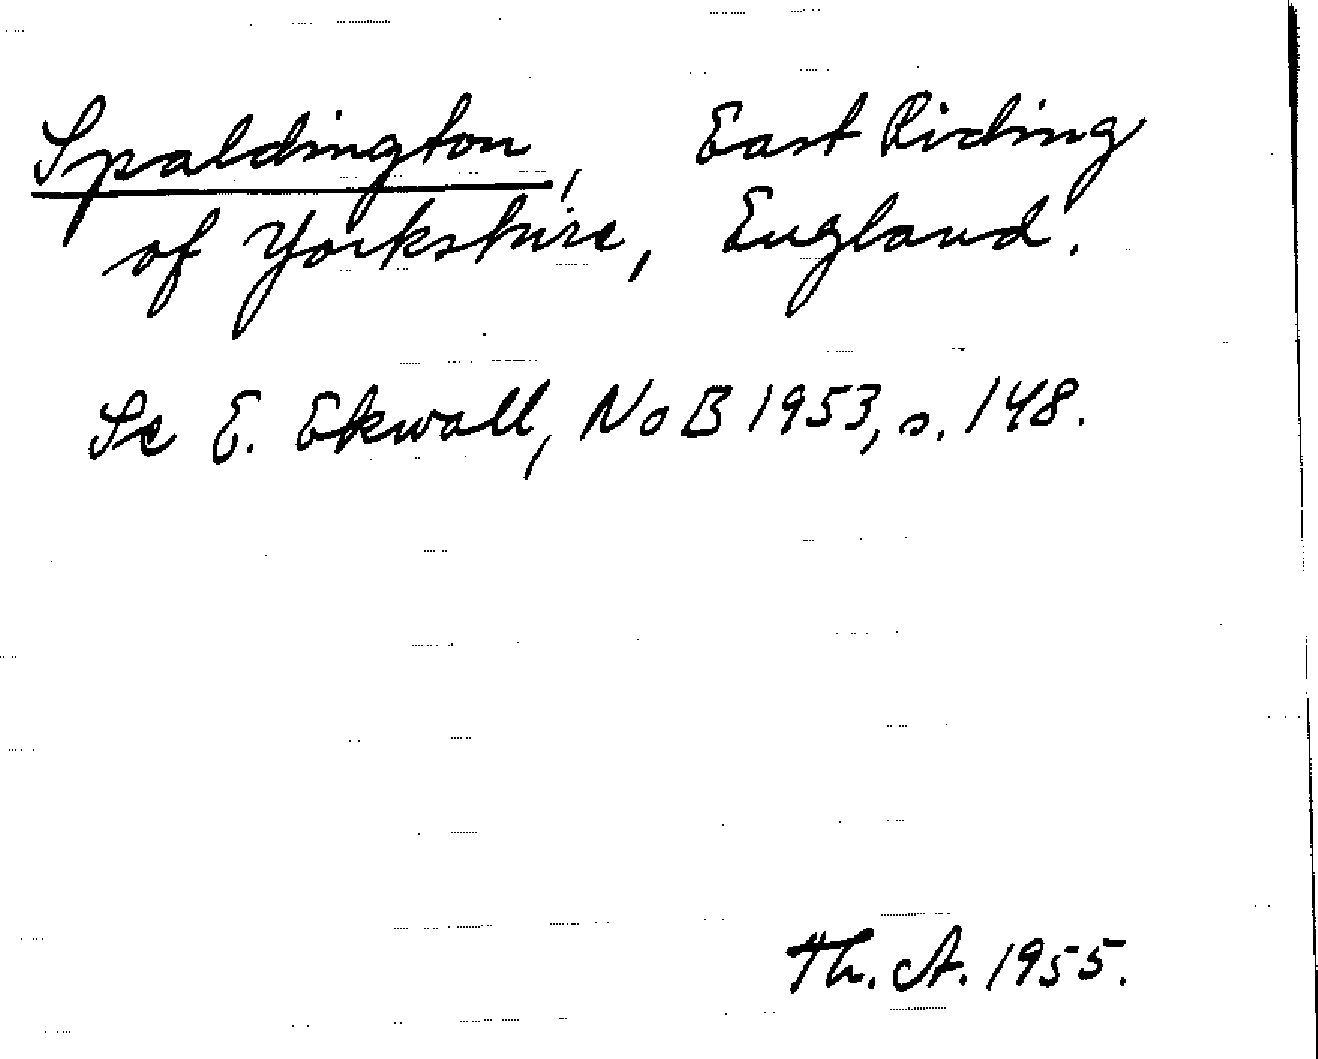 Spaldington, East Riding
of Yorkshire, England.
Se E. Ekwall, NoB 1953, s. 148.
Th. A. 1955.